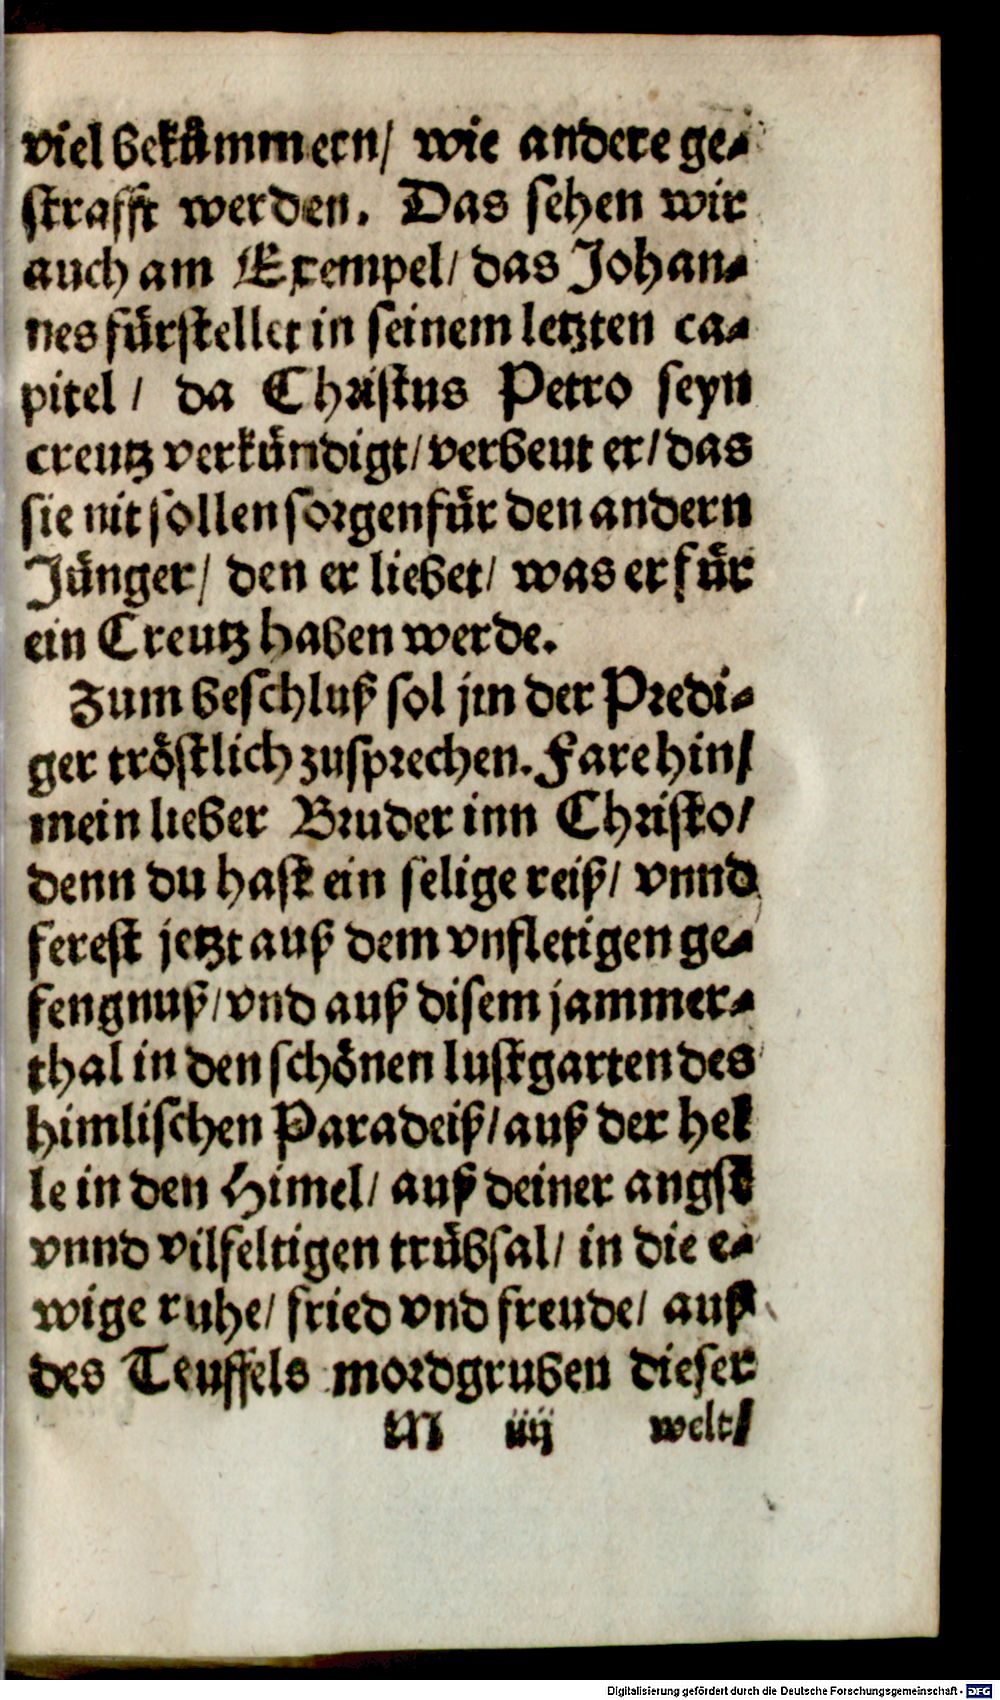 viel bekümmern/ wie andere ge-
strafft werden. Das sehen wir
auch am Exempel/ das Johan-
nes fürstellet in seinem letzten ca-
pitel / da Christus Petro seyn
creutz verkündigt/ verbeut er/ das
sie nit sollen sorgen für den andern
Jünger/ den er liebet/ was er für
ein Creutz haben werde.
Zum beschluß sol jm der Predi-
ger tröstlich zusprechen. Fare hin/
mein lieber Bruder inn Christo/
denn du hast ein selige reiß/ vnnd
ferest jetzt auß dem vnfletigen ge-
fengnuß/ vnd auß disem jammer-
thal in den schönen lustgarten des
himlischen Paradeiß/ auß der hel
le in den Himel/ auß deiner angst
vnnd vilfeltigen trübsal/ in die e-
wige ruhe/ fried vnd freude/ auß
des Teuffels mordgruben dieser
M iiij welt/
Digitalisierung gefördert durch die Deutsche Forschungsgemeinschaft - DFG